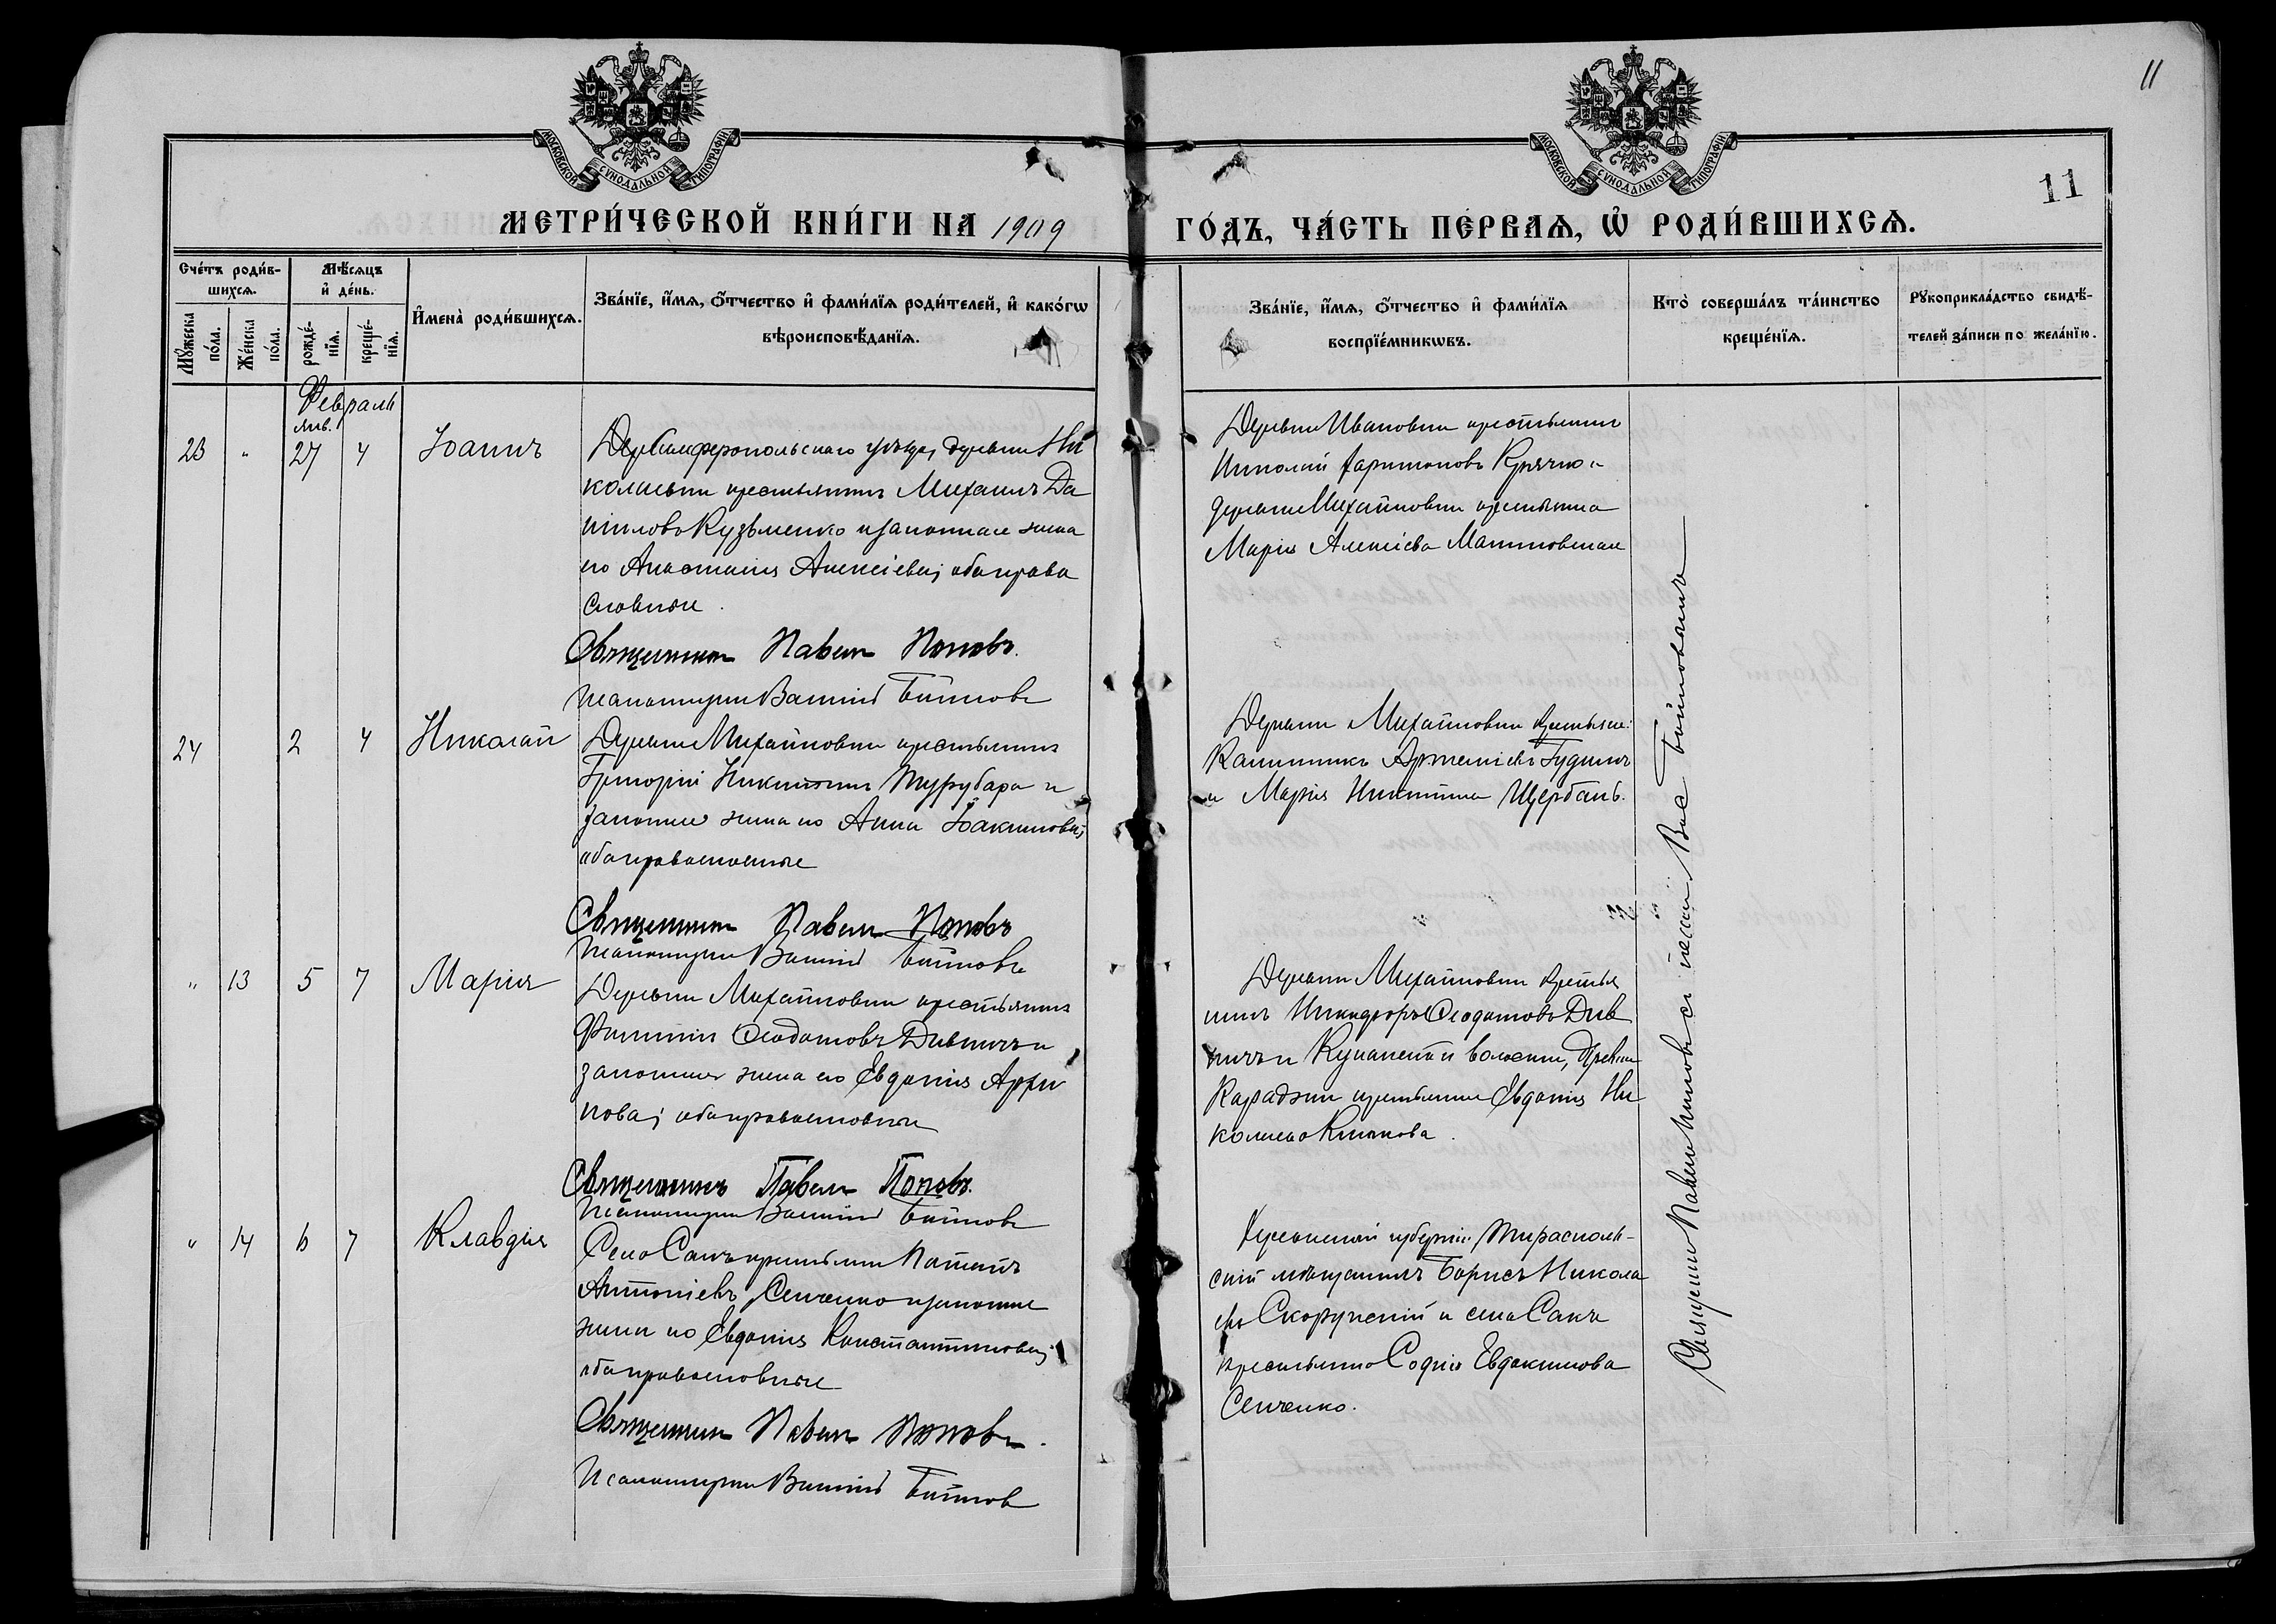 11
МОСКОВСКОЙ СѴНОДАЛЬНОЙ ТИПОГРАФІИ
МОСКОВСКОЙ СѴНОДАЛЬНОЙ ТИПОГРАФІИ
11
МЕТРИ́ЧЕСКОЙ КНИ́ГИ НА 1909
ГО́ДЪ, ЧА́СТЬ ПЕ́РВАѦ, Ѡ҆ РОДИ́ВШИХСѦ.
Сче́тъ роди́в-
шихсѧ.
Мꙋ́жеска по́ла.
Же́нска по́ла.
Мѣ́сѧцъ
и҆ де́нь.
рожде́-
нїѧ.
креще́-
нїѧ.
И҆мена̀ роди́вшихсѧ.
Зва́нїе, и҆́мѧ, ѻ҆́тчество и҆ фами́лїѧ роди́телей, и҆ како́гѡ
вѣроисповѣ́данїѧ.
Зва́нїе, и҆́мѧ, ѻ҆́тчество и҆ фами́лїѧ
воспрїе́мникѡвъ.
Кто̀ соверша́лъ та́инство
креще́нїѧ.
Рꙋкоприкла́дство свидѣ́-
телей за́писи по жела́нїю.
Февраль
янв.
23 " 27 4 Іоаннъ
Симферопольскаго уѣзда, деревни Ни
колаевки крестьянинъ Михаилъ Да
ніиловъ Кузьменко и законная жена
его Анастасія Алексіева; оба право
славные.
Священникъ Павелъ Поповъ.
Псаломщикъ Василій
Деревни Ивановки крестьянинъ
Николай Харитоновъ Крячко и
деревни Михайловки крестьянка
Марія Алексіева
24 2 4 Николай
Деревни Михайловки крестьянинъ
Григорій Никитинъ Турубара и
законная жена его Анна Іоакимова;
оба православные
Священникъ Павелъ Поповъ
Псаломщикъ Василій
Деревни Михайловки крестьяне:
Каллиникъ Артеміевъ Гудимъ
и Марія Никитина Щербань.
" 13 5 7 Марія
Деревни Михайловки крестьянинъ
Филиппъ Феодотовъ Дивничъ и
законная жена его Евдокія
оба православные
Священникъ Павелъ Поповъ.
Псаломщикъ Василій
Деревни Михайловки крестья
нинъ Никифоръ Феодотовъ Див
ничъ и волости, деревни
Караджи крестьянка Евдокія Ни
колаева
" 14 6 7 Клавдія
Села Сакъ крестьянинъ
Антоніевъ Сенченко и законная
жена его Евдокія Константинова;
оба православные
Священникъ Павелъ Поповъ.
Псаломщикъ Василій
Херсонской губерніи Тирасполь-
скій мѣщанинъ Борисъ Никола
евъ и села Сакъ
крестьянка Софія Евдокимова
Сенченко.
Священникъ Павелъ Поповъ съ